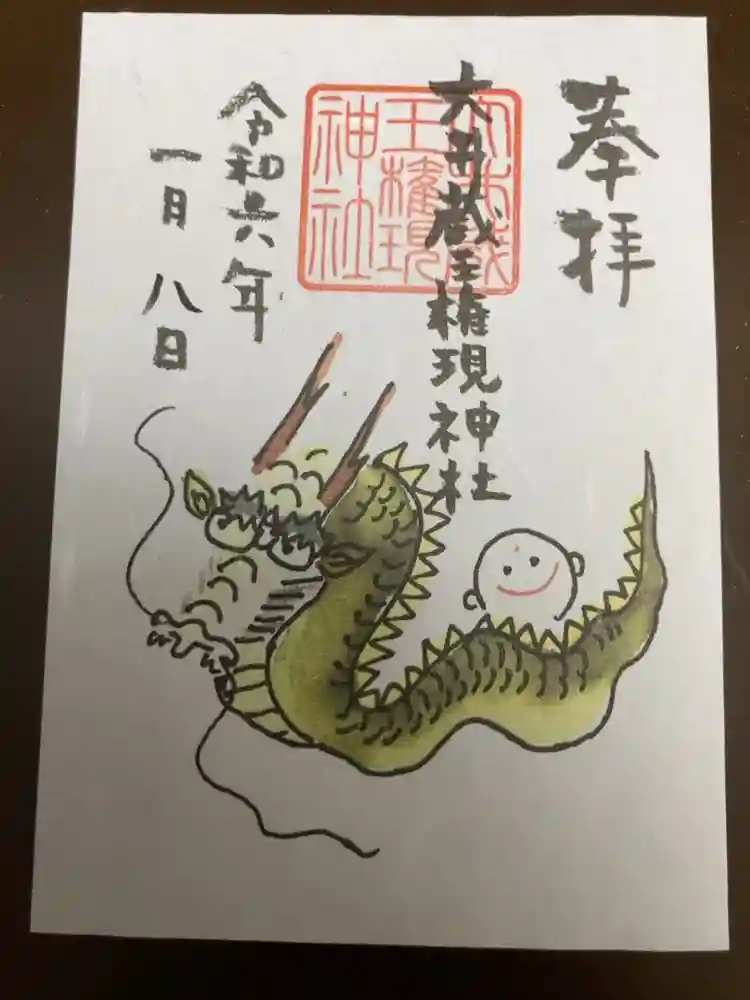 奉拝
大井蔵王権現神社
大井蔵
王権現
神社
令和六年
一月八日